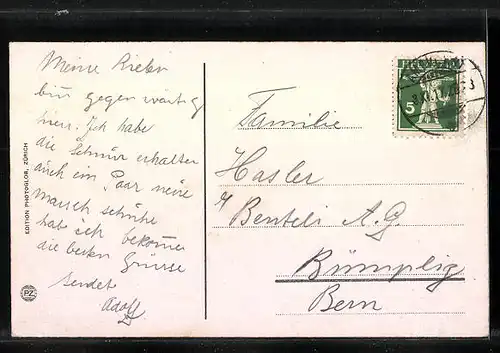 Meine Lieben
bin gegenwärtig
hier. Ich habe
die Schnur erhalten
auch ein Paar neue
marsch schuhe
hab ich bekommen
die besten Grüsse
sendet
Adolf
EDITION PHOTOGLOB, ZÜRICH
PZ
HELVETIA
5
Familie
Hasler
Benteli A.G.
Bümpliz
Bern